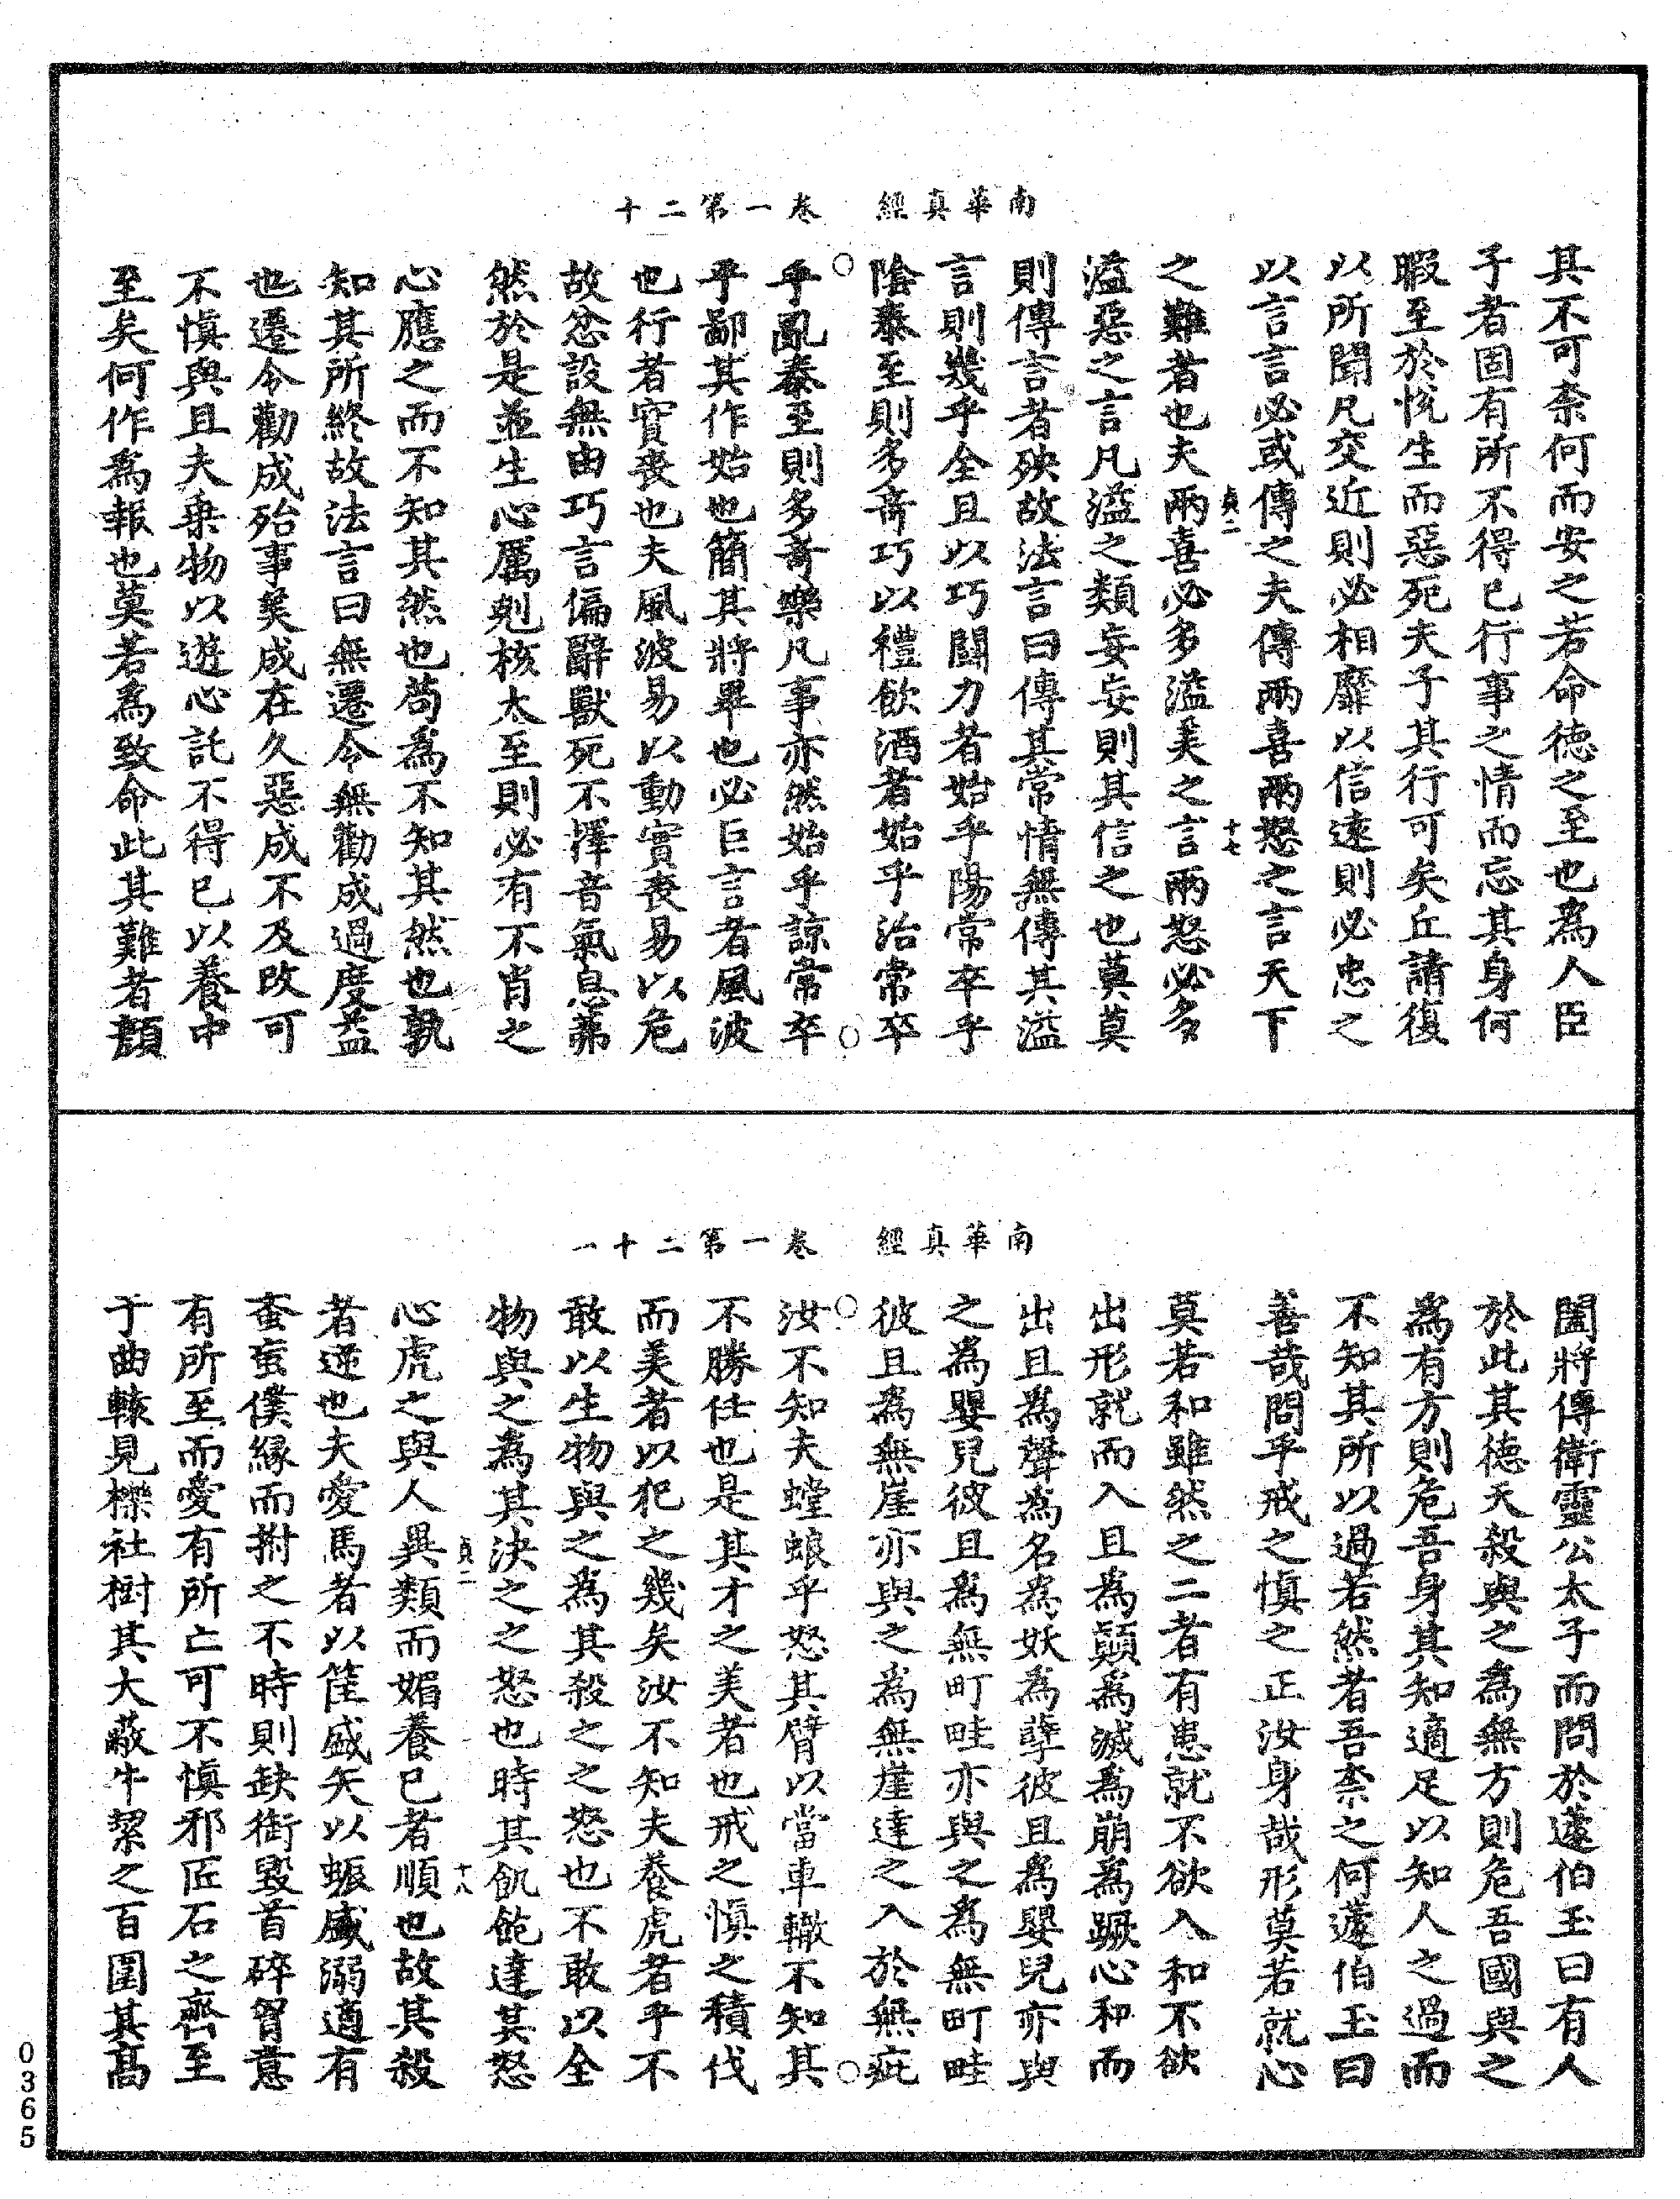 南華真經　卷一第二十
其不可柰何而安之若命德之至也為人臣
子者固有所不得已行事之情而忘其身何
暇至於悅生而惡死夫子其行可矣丘請復
以所聞凡交近則必相靡以信遠則必忠之
以言言必或傳之夫傳兩喜兩怒之言天下
貞二　十七
之難者也夫兩喜必多溢美之言兩怒必多
溢惡之言凡溢之類妄妄則其信之也莫莫
則傳言者殃故法言曰傳其常情無傳其溢
言則幾乎全且以巧鬪力者始乎陽常卒乎
陰泰至則多奇巧以禮飲酒者始乎治常卒
乎亂泰至則多奇樂凡事亦然始乎諒常卒
乎鄙其作始也簡其將畢也必巨言者風波
也行者實喪也夫風波易以動實喪易以危
故忿設無由巧言偏辭獸死不擇音氣息茀
然於是並生心厲剋核太至則必有不肖之
心應之而不知其然也苟為不知其然也孰
知其所終故法言曰無遷令無勸成過度益
也遷令勸成殆事美成在久惡成不及改可
不慎與且夫乗物以遊心託不得已以養中
至矣何作為報也莫若為致命此其難者顏
南華真經　卷一第二十一
闔將傳衛靈公太子而問於蘧伯玉曰有人
於此其德天殺與之為無方則危吾國與之
為有方則危吾身其知適足以知人之過而
不知其所以過若然者吾柰之何蘧伯玉曰
善哉問乎戒之慎之正汝身哉形莫若就心
莫若和雖然之二者有患就不欲入和不欲
出形就而入且為顛為滅為崩為蹶心和而
出且為聲為名為妖為孽彼且為嬰兒亦與
之為嬰兒彼且為無町畦亦與之為無町畦
彼且為無崖亦與之為無崖達之入於無疵
汝不知夫螳蜋乎怒其臂以當車轍不知其
不勝任也是其才之美者也戒之慎之積伐
而美者以犯之幾矣汝不知夫養虎者乎不
敢以生物與之為其殺之之怒也不敢以全
物與之為其決之之怒也時其飢飽達其怒
貞二　十八
心虎之與人異類而媚養己者順也故其殺
者逆也夫愛馬者以筐盛矢以蜄盛溺適有
蚉䖟僕緣而拊之不時則缺銜毀首碎胷意
有所至而愛有所亡可不慎邪匠石之齊至
于曲轅見櫟社樹其大蔽牛絜之百圍其高
0365